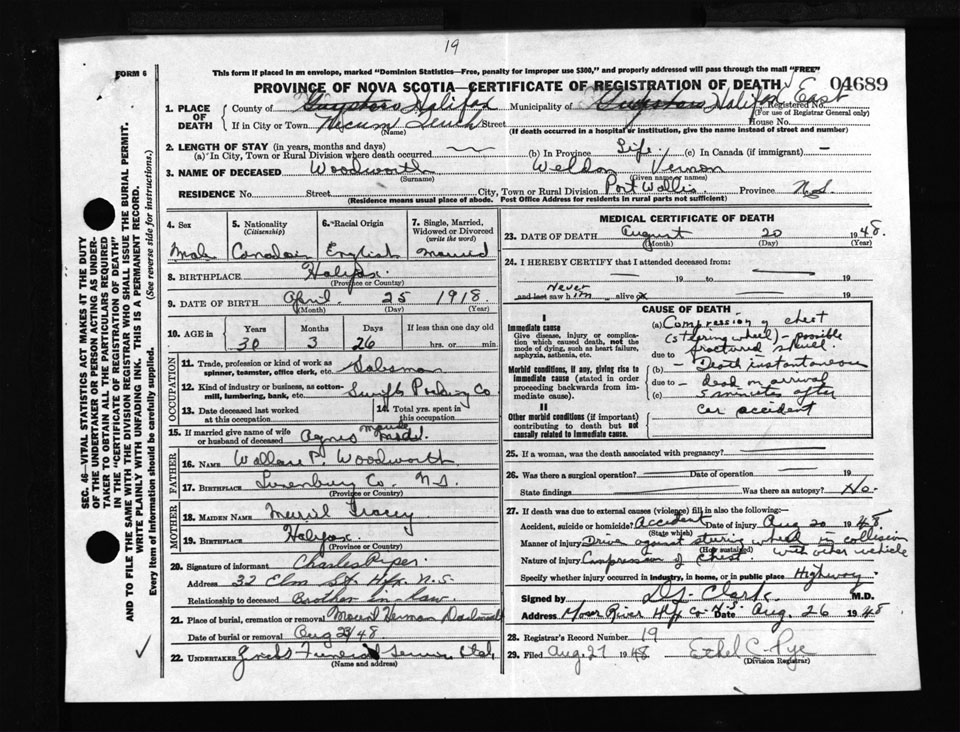 19
FORM 6
This form if placed in an envelope, marked "Dominion Statistics—Free, penalty for improper use $300," and properly addressed will pass through the mail "FREE"
PROVINCE OF NOVA SCOTIA—CERTIFICATE OF REGISTRATION OF DEATH
04689
1. PLACE OF DEATH
County of Guysboro Halifax Municipality of Guysboro Halifax East Registered No.
(For use of Registrar General only)
If in City or Town Necum Teuch Street House No.
(Name) (If death occurred in a hospital or institution, give the name instead of street and number)
2. LENGTH OF STAY (in years, months and days)
(a) In City, Town or Rural Division where death occurred (b) In Province Life. (c) In Canada (if immigrant) —
3. NAME OF DECEASED Woodworth Weldon Vernon
(Surname) (Given name or names)
RESIDENCE No. Street City, Town or Rural Division Port Wallis. Province N.S.
(Residence means usual place of abode. Post Office Address for residents in rural parts not sufficient)
4. Sex 5. Nationality (Citizenship) 6. Racial Origin 7. Single, Married, Widowed or Divorced (write the word)
Male Canadian English Married
8. BIRTHPLACE Halifax.
(Province or Country)
9. DATE OF BIRTH April 25 1918.
(Month) (Day) (Year)
10. AGE in Years Months Days If less than one day old
30 3 26 hrs. or min.
OCCUPATION
11. Trade, profession or kind of work as spinner, teamster, office clerk, etc. Salesman
12. Kind of industry or business, as cotton-mill, lumbering, bank, etc. Swifts Packing Co
13. Date deceased last worked at this occupation
14. Total yrs. spent in this occupation
15. If married give name of wife or husband of deceased Agnes Maude
FATHER
16. NAME Wallace P. Woodworth
17. BIRTHPLACE Lunenburg Co. N.S.
(Province or Country)
MOTHER
18. MAIDEN NAME Meriel Tracey
19. BIRTHPLACE Halifax.
(Province or Country)
20. Signature of informant Charles Piper
Address 32 Elm St. Hfx. N.S.
Relationship to deceased Brother-in-law.
21. Place of burial, cremation or removal Mount Hermon Dartmouth
Date of burial or removal Aug 23/48
22. UNDERTAKER Funeral Service Ltd.
(Name and address)
MEDICAL CERTIFICATE OF DEATH
23. DATE OF DEATH August 20 1948.
(Month) (Day) (Year)
24. I HEREBY CERTIFY that I attended deceased from:
19 to 19
Never
and last saw him alive on 19
CAUSE OF DEATH
I
Immediate cause
Give disease, injury or complication which caused death, not the mode of dying, such as heart failure, asphyxia, asthenia, etc.
Morbid conditions, if any, giving rise to immediate cause (stated in order proceeding backwards from immediate cause).
II
Other morbid conditions (if important) contributing to death but not causally related to immediate cause.
(a) Compression of chest
(steering wheel) - possible
due to fractured skull.
(b) - Death instantaneous
due to - dead on arrival
(c) 5 minutes after
car accident
25. If a woman, was the death associated with pregnancy?
26. Was there a surgical operation? Date of operation 19
State findings Was there an autopsy? No.
27. If death was due to external causes (violence) fill in also the following:—
Accident, suicide or homicide? Accident Date of injury Aug 20 1948
(State which)
Manner of injury Drive against steering wheel in collision
(How sustained) with other vehicle
Nature of injury Compression of chest
Specify whether injury occurred in industry, in home, or in public place Highway
Signed by Clark. M.D.
Address Moser River Hfx Co N.S. Date Aug. 26 1948
28. Registrar's Record Number 19
29. Filed Aug. 27 1948 Ethel C. Pye
(Division Registrar)
SEC. 46—VITAL STATISTICS ACT MAKES IT THE DUTY
OF THE UNDERTAKER OR PERSON ACTING AS UNDER-
TAKER TO OBTAIN ALL THE PARTICULARS REQUIRED
IN THE "CERTIFICATE OF REGISTRATION OF DEATH"
AND TO FILE THE SAME WITH THE DIVISION REGISTRAR WHO SHALL ISSUE THE BURIAL PERMIT.
WRITE PLAINLY WITH UNFADING INK. THIS IS A PERMANENT RECORD.
Every item of information should be carefully supplied. (See reverse side for instructions.)